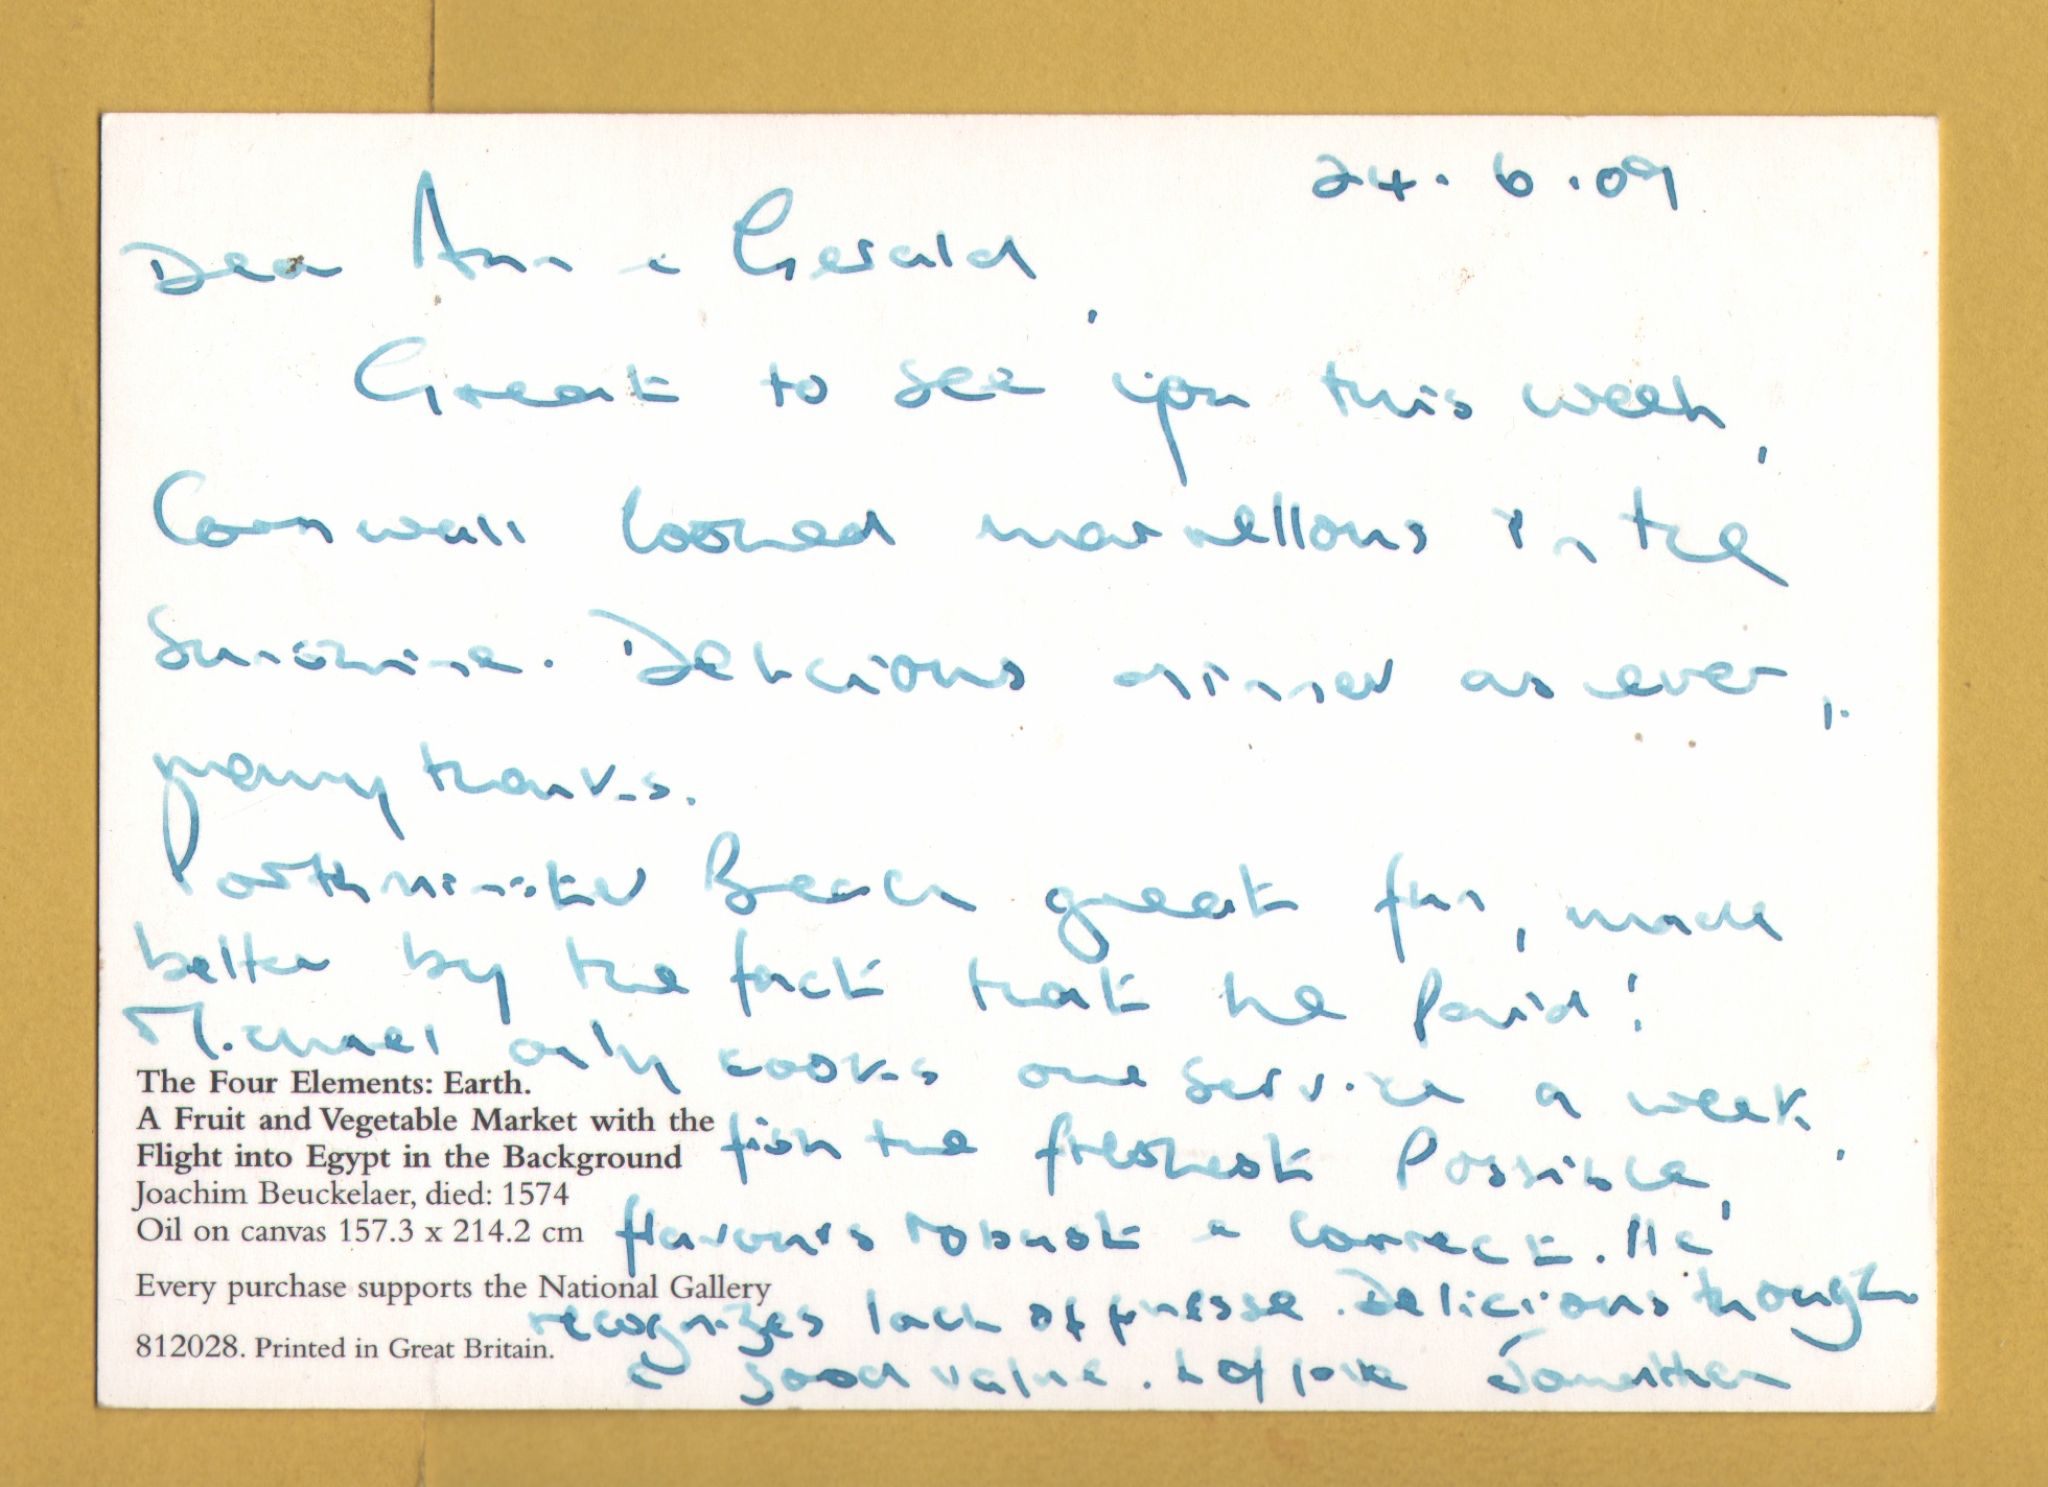 24.6.09
Dear Ann & Gerald,
Great to see you this week,
Cornwall looked marvellous in the
Sunshine. Delicious dinner as ever,
many thanks.
Porthminster Beach great fun, made
better by the fact that he paid!
Michael only cooks one service a week,
fish the freshest possible,
flavours robust & correct. He
recognizes lack of finesse. Delicious though
& good value. Lof love Jonathan
The Four Elements: Earth.
A Fruit and Vegetable Market with the
Flight into Egypt in the Background
Joachim Beuckelaer, died: 1574
Oil on canvas 157.3 x 214.2 cm
Every purchase supports the National Gallery
812028. Printed in Great Britain.